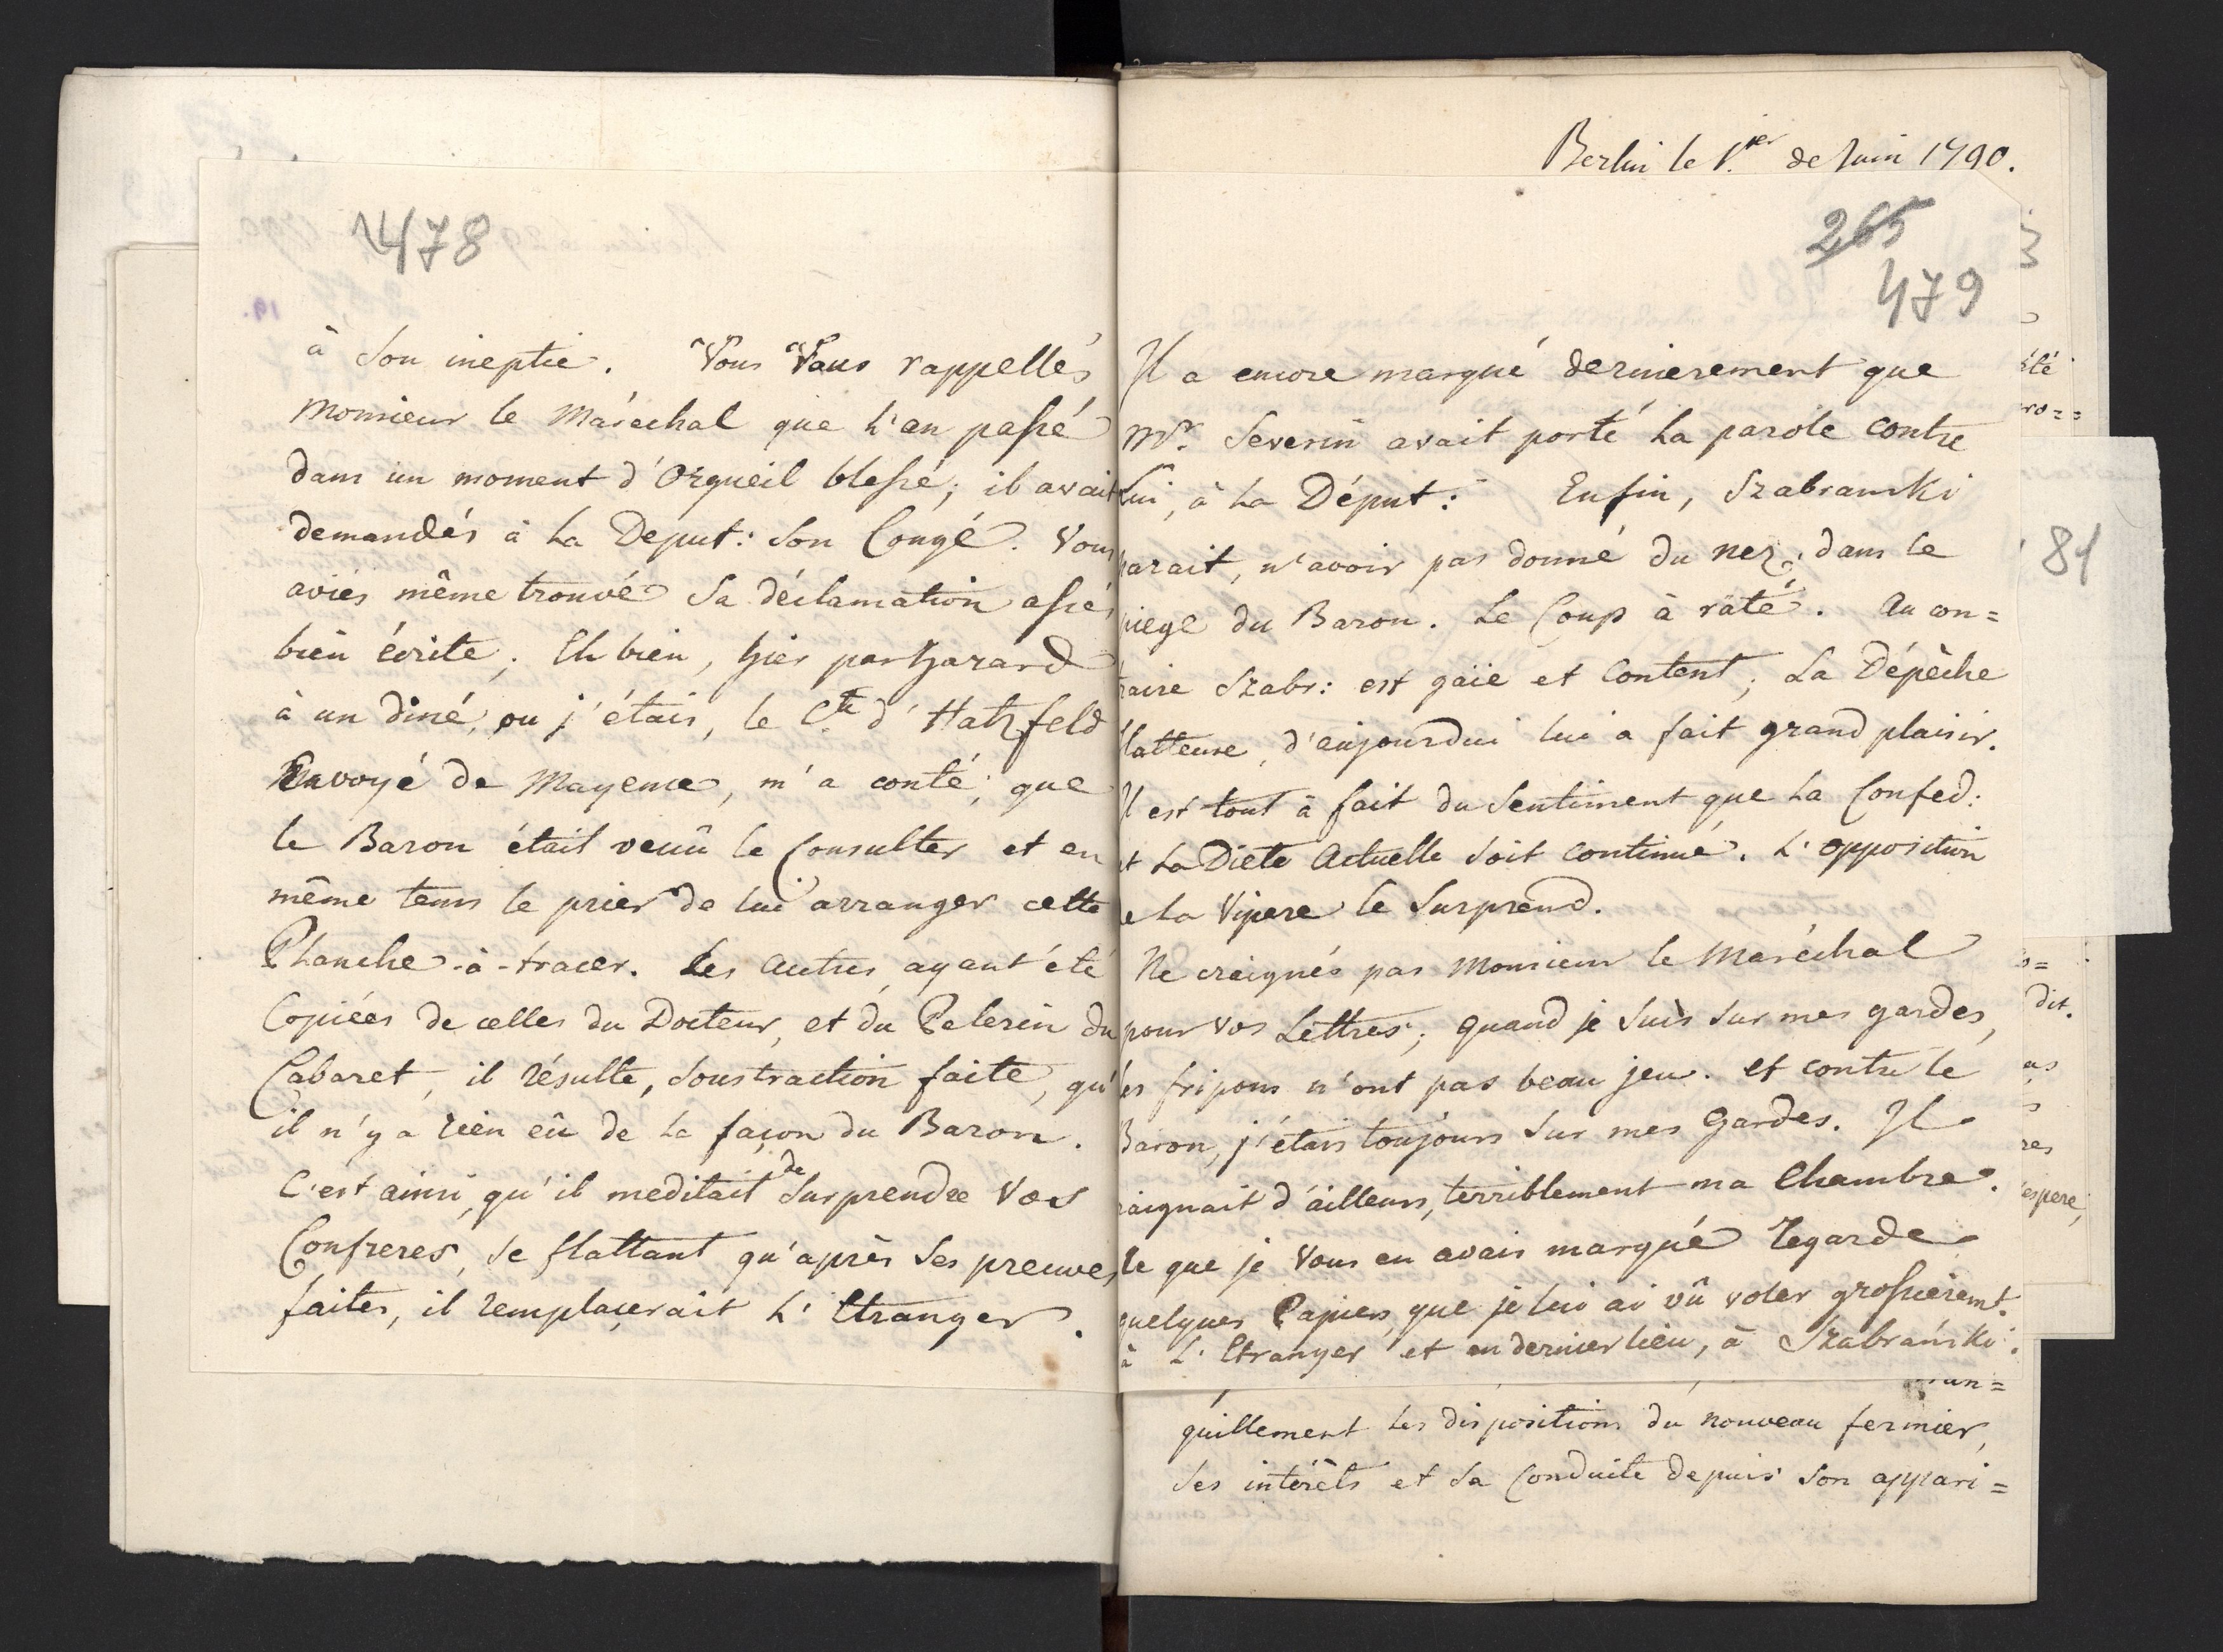 478
à Son ineptie. Vous Vous rappellés
Monsieur le Maréchal que L'an passé
dans un moment d'Orgueil blessé; il avait
demandés à La Deput: Son Congé. Vous
aviés même trouvé Sa déclamation assés
bien écrite; Eh bien, hier par hazard
à un diné, ou j'étais, le Cte d'Hatzfeld
Envoyé de Mayence, m'a conté, que
le Baron était venû le Consulter et en
même tems le prier de lui arranger cette
Planche-à-tracer. Les Autres, ayant été
Copiées de celles du Docteur, et du Pelerin du
Cabaret, il résulte, Soustraction faite, qu'
il n'y a rien eû de La façon du Baron.
C'est ainsi, qu'il meditait de Surprendre Vos
Confreres, se flattant qu'après Ses preuves
faites, il remplaçerait L'Etranger.
Berlin le 1.er de Juin 1790.
265
479
Il a encore marqué dernierement que
Mr. Severin avait porté La parole contre
Lui, à La Déput: Enfin, Szabranski
parait, n'avoir pas donné du nez, dans le
piege du Baron. Le Coup à raté. Au con=
traire Szabr: est gaïe et Content; La Dépêche
flatteuse, d'aujourdui lui a fait grand plaisir.
Il est tout à fait du Sentiment que La Confed:
et La Diete Actuelle Soit continué. L'opposition
de La Vipere le Surprend.
Ne craignés pas Monsieur le Maréchal
pour vos Lettres; quand je Suis Sur mes gardes,
les fripons n'ont pas beau jeu. et contre le
Baron, j'étais toujours Sur mes Gardes. Il
craignait d'ailleurs, terriblement ma Chambre.
Ce que je Vous en avais marqué regarde
quelques Papiers, que je lui ai vû voler grossieremt.
à L'Etranger et en dernier lieu, à Szabrański.
quillement Les dispositions du nouveau fermier,
Ses intérêts et Sa Conduite depuis Son appari=
été
ro=
81
dit.
as
res
espere,